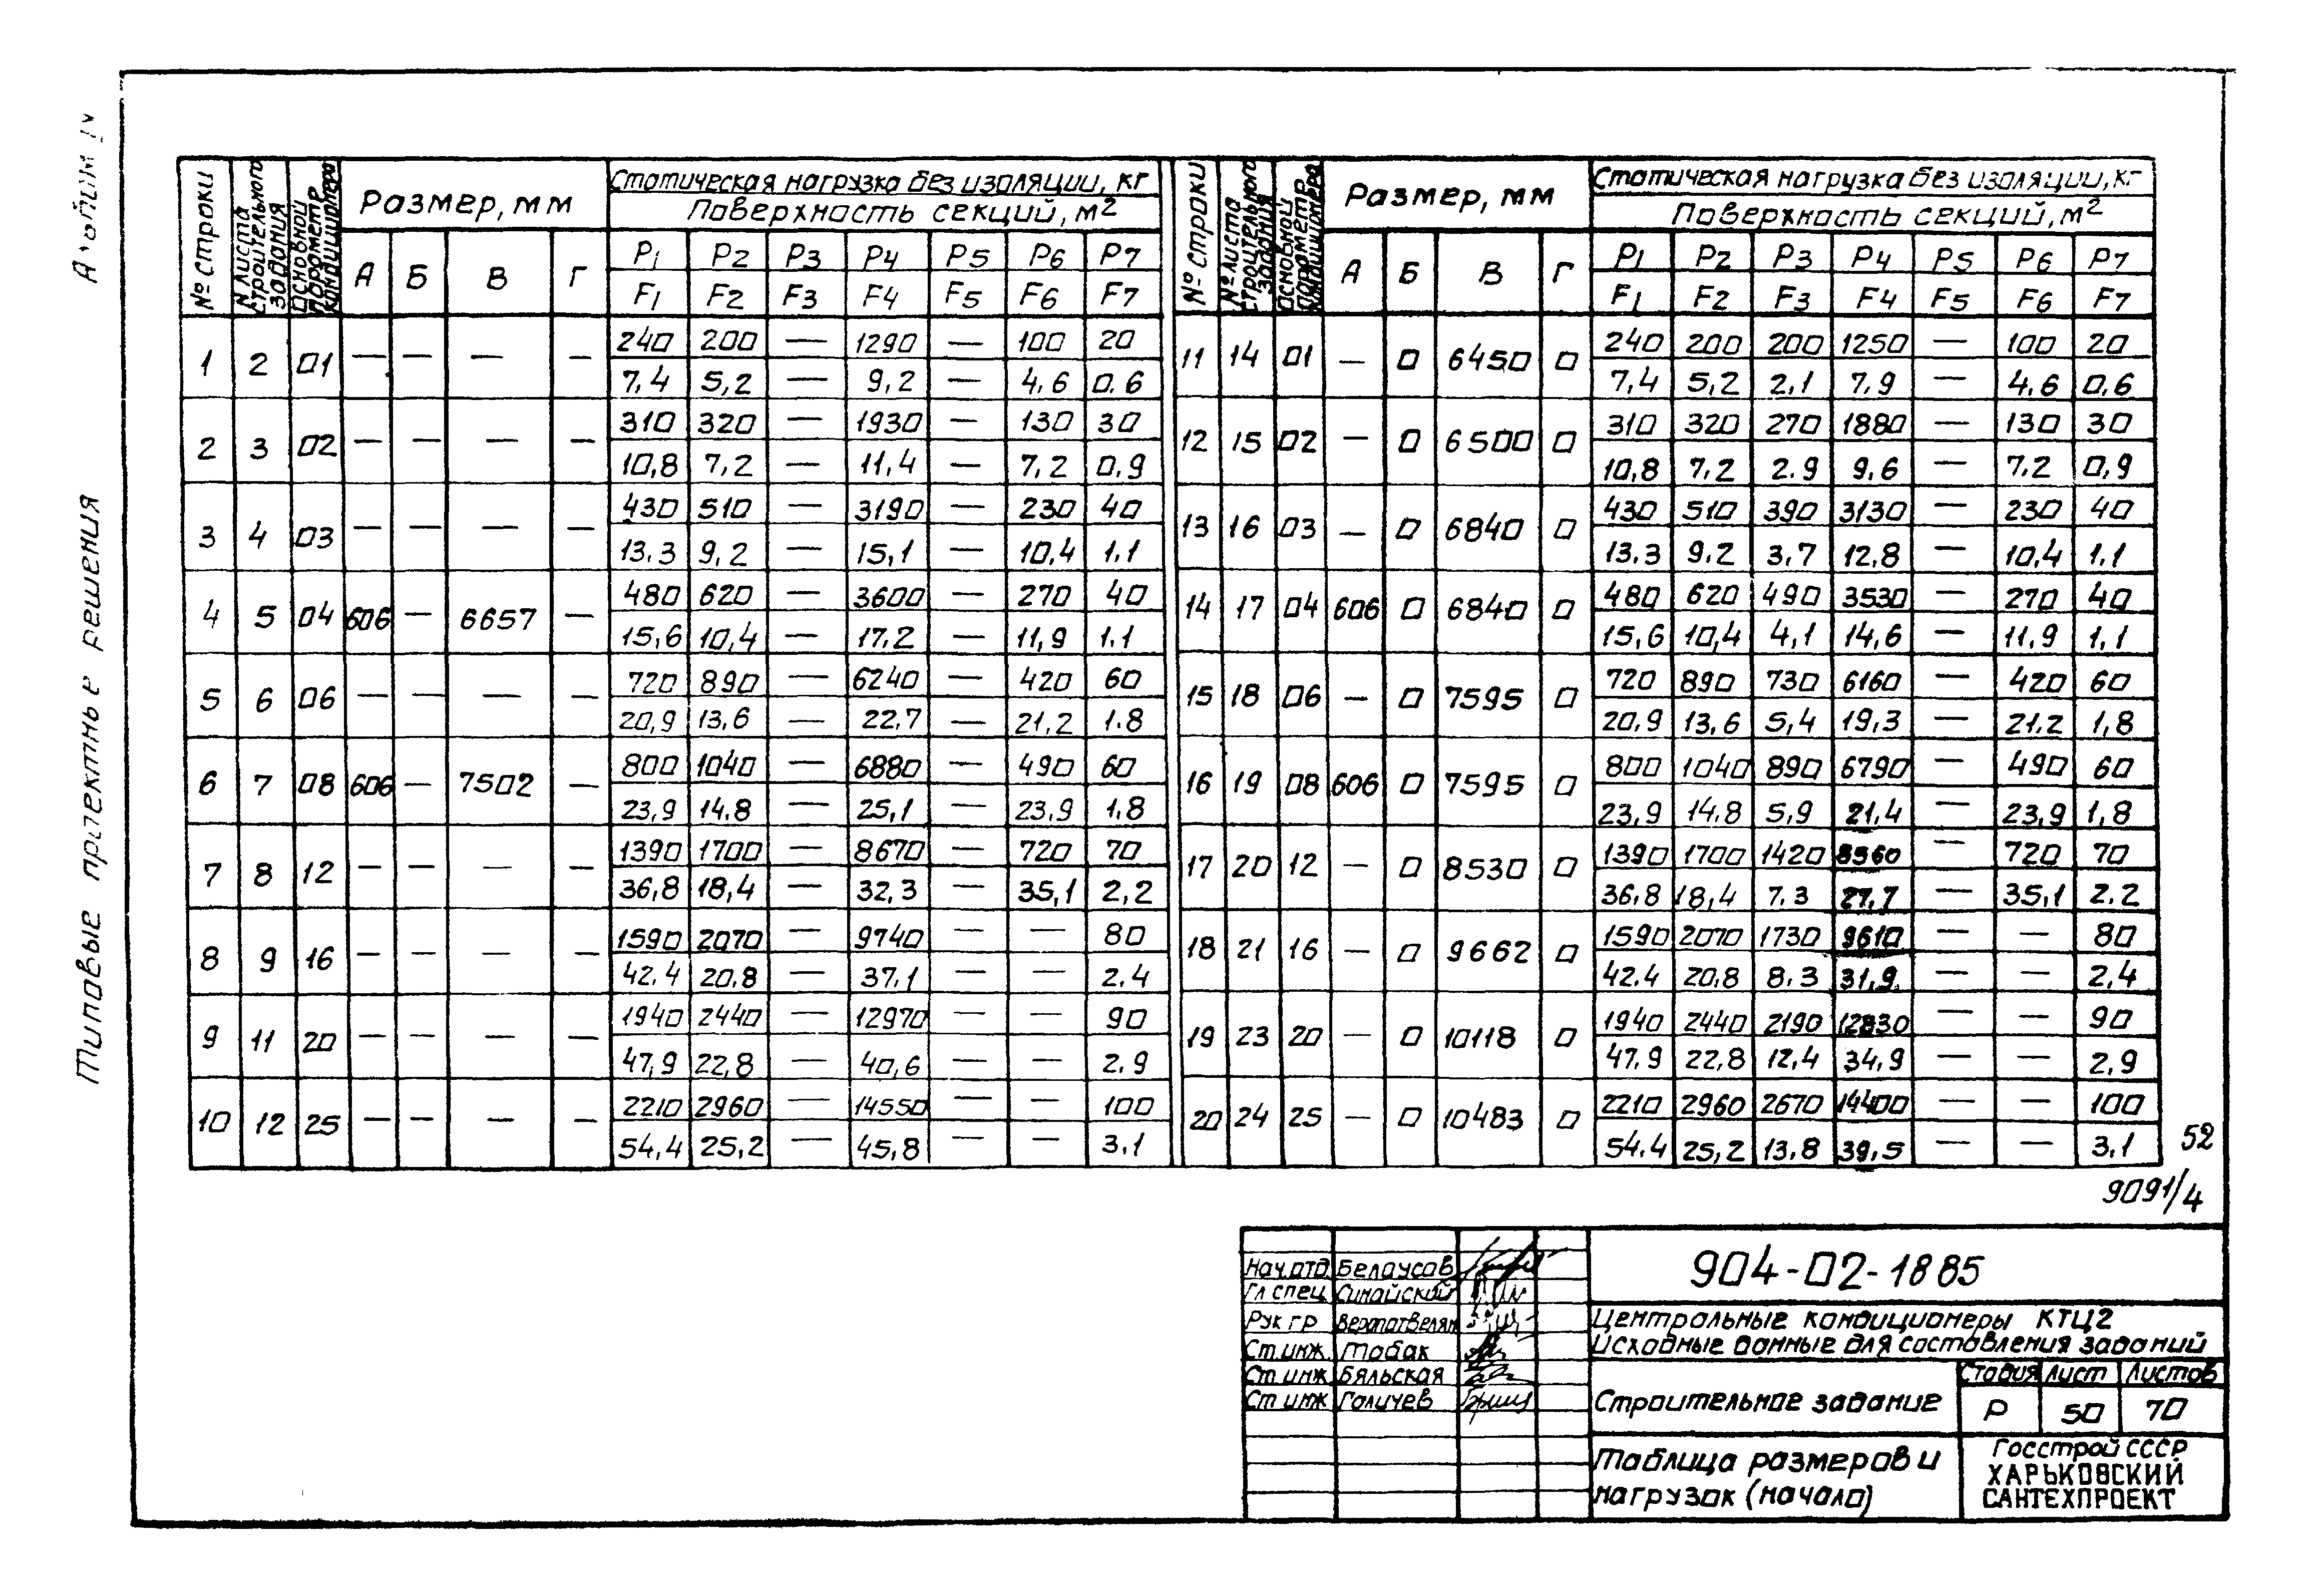 Альбом IV
Типовые проектные решения
№ строки | N листа строительного задания | Основной параметр кондиционера | Размер, мм | Статическая нагрузка без изоляции, кг
Поверхность секций, м2
А | Б | В | Г | P1 | P2 | P3 | P4 | P5 | P6 | P7
F1 | F2 | F3 | F4 | F5 | F6 | F7
1 | 2 | 01 | — | — | — | — | 240 | 200 | — | 1290 | — | 100 | 20
7,4 | 5,2 | — | 9,2 | — | 4,6 | 0,6
2 | 3 | 02 | — | — | — | — | 310 | 320 | — | 1930 | — | 130 | 30
10,8 | 7,2 | — | 11,4 | — | 7,2 | 0,9
3 | 4 | 03 | — | — | — | — | 430 | 510 | — | 3190 | — | 230 | 40
13,3 | 9,2 | — | 15,1 | — | 10,4 | 1,1
4 | 5 | 04 | 606 | — | 6657 | — | 480 | 620 | — | 3600 | — | 270 | 40
15,6 | 10,4 | — | 17,2 | — | 11,9 | 1,1
5 | 6 | 06 | — | — | — | — | 720 | 890 | — | 6240 | — | 420 | 60
20,9 | 13,6 | — | 22,7 | — | 21,2 | 1.8
6 | 7 | 08 | 606 | — | 7502 | — | 800 | 1040 | — | 6880 | — | 490 | 60
23,9 | 14,8 | — | 25,1 | — | 23,9 | 1,8
7 | 8 | 12 | — | — | — | — | 1390 | 1700 | — | 8670 | — | 720 | 70
36,8 | 18,4 | — | 32,3 | — | 35,1 | 2,2
8 | 9 | 16 | — | — | — | — | 1590 | 2070 | — | 9740 | — | — | 80
42,4 | 20,8 | — | 37,1 | — | — | 2,4
9 | 11 | 20 | — | — | — | — | 1940 | 2440 | — | 12970 | — | — | 90
47,9 | 22,8 | — | 40,6 | — | — | 2,9
10 | 12 | 25 | — | — | — | — | 2210 | 2960 | — | 14550 | — | — | 100
54,4 | 25,2 | — | 45,8 | — | — | 3,1
№ строки | № листа строительного задания | Основной параметр кондиционера | Размер, мм | Статическая нагрузка без изоляции, кг
Поверхность секций, м2
А | Б | В | Г | P1 | P2 | P3 | P4 | P5 | P6 | P7
F1 | F2 | F3 | F4 | F5 | F6 | F7
11 | 14 | 01 | — | 0 | 6450 | 0 | 240 | 200 | 200 | 1250 | — | 100 | 20
7,4 | 5,2 | 2,1 | 7,9 | — | 4,6 | 0,6
12 | 15 | 02 | — | 0 | 6500 | 0 | 310 | 320 | 270 | 1880 | — | 130 | 30
10,8 | 7,2 | 2.9 | 9,6 | — | 7,2 | 0,9
13 | 16 | 03 | — | 0 | 6840 | 0 | 430 | 510 | 390 | 3130 | — | 230 | 40
13,3 | 9,2 | 3,7 | 12,8 | — | 10,4 | 1,1
14 | 17 | 04 | 606 | 0 | 6840 | 0 | 480 | 620 | 490 | 3530 | — | 270 | 40
15,6 | 10,4 | 4,1 | 14,6 | — | 11,9 | 1,1
15 | 18 | 06 | — | 0 | 7595 | 0 | 720 | 890 | 730 | 6160 | — | 420 | 60
20,9 | 13,6 | 5,4 | 19,3 | — | 21,2 | 1,8
16 | 19 | 08 | 606 | 0 | 7595 | 0 | 800 | 1040 | 890 | 6790 | — | 490 | 60
23,9 | 14,8 | 5,9 | 21,4 | — | 23,9 | 1,8
17 | 20 | 12 | — | 0 | 8530 | 0 | 1390 | 1700 | 1420 | 8560 | — | 720 | 70
36,8 | 18,4 | 7,3 | 27,7 | — | 35,1 | 2,2
18 | 21 | 16 | — | 0 | 9662 | 0 | 1590 | 2070 | 1730 | 9610 | — | — | 80
42,4 | 20,8 | 8,3 | 31,9 | — | — | 2,4
19 | 23 | 20 | — | 0 | 10118 | 0 | 1940 | 2440 | 2190 | 12830 | — | — | 90
47,9 | 22,8 | 12,4 | 34,9 | — | — | 2,9
20 | 24 | 25 | — | 0 | 10483 | 0 | 2210 | 2960 | 2670 | 14400 | — | — | 100
54,4 | 25,2 | 13,8 | 39,5 | — | — | 3,1
52
9091/4
Нач.отд. Белоусов
Гл спец. Синайский
Рук гр
Ст.инж. Тобак
Ст инж Бяльская
Ст инж Галичев
904-02-1885
Центральные кондиционеры КТЦ2
Исходные данные для составления заданий
Строительное задание
Стадия | Лист | Листов
Р | 50 | 70
Таблица размеров и
нагрузок (начало)
Госстрой СССР
ХАРЬКОВСКИЙ
САНТЕХПРОЕКТ